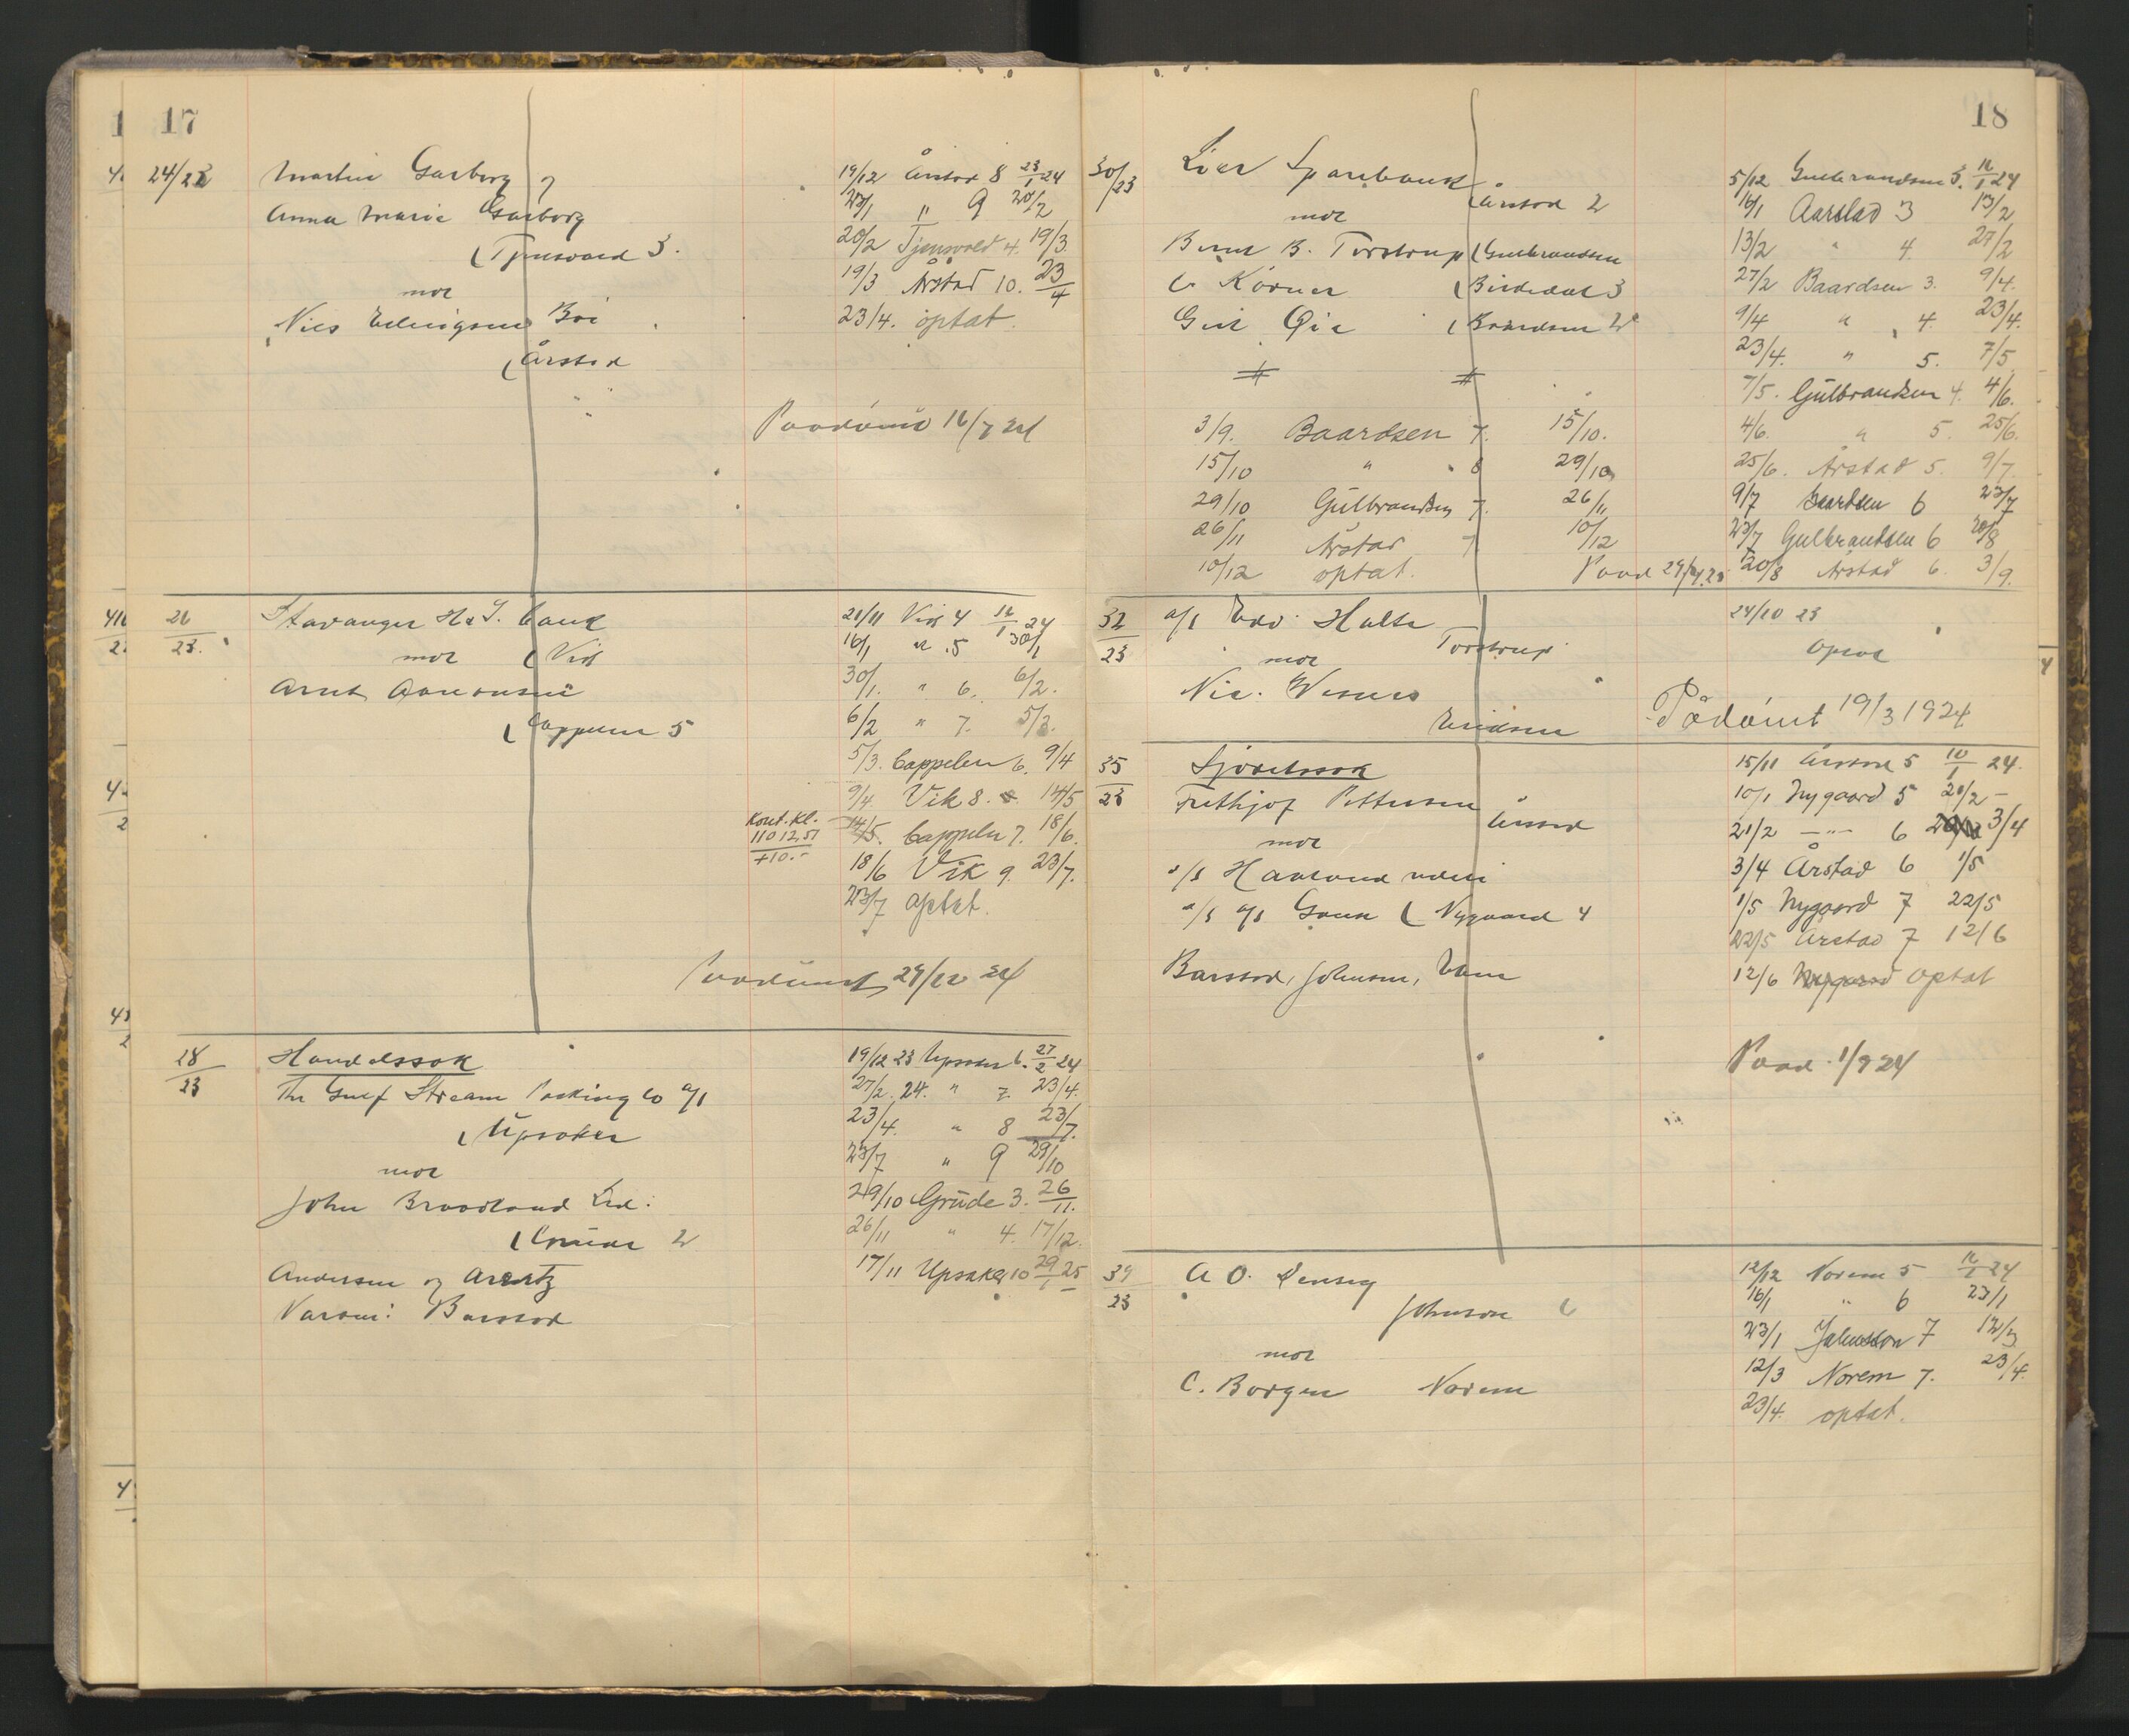 17
24/23
Martin Garborg og
Anna Marie Garborg
(Tjensvold 3.
mot
Nils Boe
(Årstad
19/12 Årstad 8 23/1 24
23/1 " 9 20/2
20/2 Tjensvold 4. 19/3
19/3 Årstad 10. 23/4
23/4. optat.
Paadömt 16/7 24
26/23.
Stavanger H & I. bank
mot (Vik
Arnt
(Cappelen 5
21/11 Vik 4 16/1 24
16/1 " 5 30/1
30/1. " 6. 6/2.
6/2 " 7. 5/3.
5/3. Cappelen 6. 9/4
9/4. Vik 8. 14/5
Kont. Kl.
110 12,51
+10.-
14/5. Cappelen 7. 18/6.
18/6 Vik 9. 23/7.
23/7 optat.
Paadömt 29/12 24
28/23
Handelssak
The Gulf Stream Packing Co A/S
(Upsaker
mot
John Broadland Ltd:
(Grude 2
Andersen og Arentz
Varam: Barstad
19/12 23 Upsaker 6. 27/2 24
27/2. 24. " 7. 23/4.
23/4. " 8 23/7.
23/7 " 9 29/10
29/10 Grude 3. 26/11.
26/11 " 4. 17/12.
17/11 Upsaker 10 29/1 25
18
30/23
Lier Sparebank
Årstad 2
mot
Bernt B. Torstrup (Gulbrandsen
C. Körner (Birkedal 3
Geir Øie (Baardsen 2
3/9. Baardsen 7. 15/10.
15/10 " " 8 29/10
29/10 Gulbrandsen 7. 26/11
26/11 Årstad 7 10/12
10/12 optat.
5/12 Gulbrandsen 3. 16/1 24
16/1 Aarstad 3 13/2
13/2 " 4. 27/2
27/2 Baardsen 3. 9/4.
9/4 " 4. 23/4.
23/4. " 5. 7/5
7/5. Gulbrandsen 4. 4/6.
4/6. " 5. 25/6.
25/6. Årstad 5. 9/7
9/7 Baardsen 6 23/7
23/7 Gulbrandsen 6 20/8
20/8 Årstad 6. 3/9.
32/23
A/S Edv. Holte
Torstrup
mot
Nic. Wesnes
Eriksen
24/10 23
optat
Pådömt 19/3 1924
35/23
Sjörettssak
Frithjof Pettersen
Årstad
mot
S/S Haaland rederi
A/S Gann (Nygaard 4
Barstad, Johnsen,
15/11 Årstad 5 10/1 24.
10/1 Nygaard 5 21/2 -
21/2 -"- 6 3/4
3/4 Årstad 6 1/5
1/5 Nygaard 7 22/5
22/5 Årstad 7 12/6
12/6 optat
Paad. 1/9 24
39/23
A O. Densey
Johnson 6
mot
C. Borgen Norem
12/12 Norem 5 16/1 24
16/1 " 6 23/1
23/1 Johnson 7 12/3
12/3 Norem 7. 23/4.
23/4. optat.